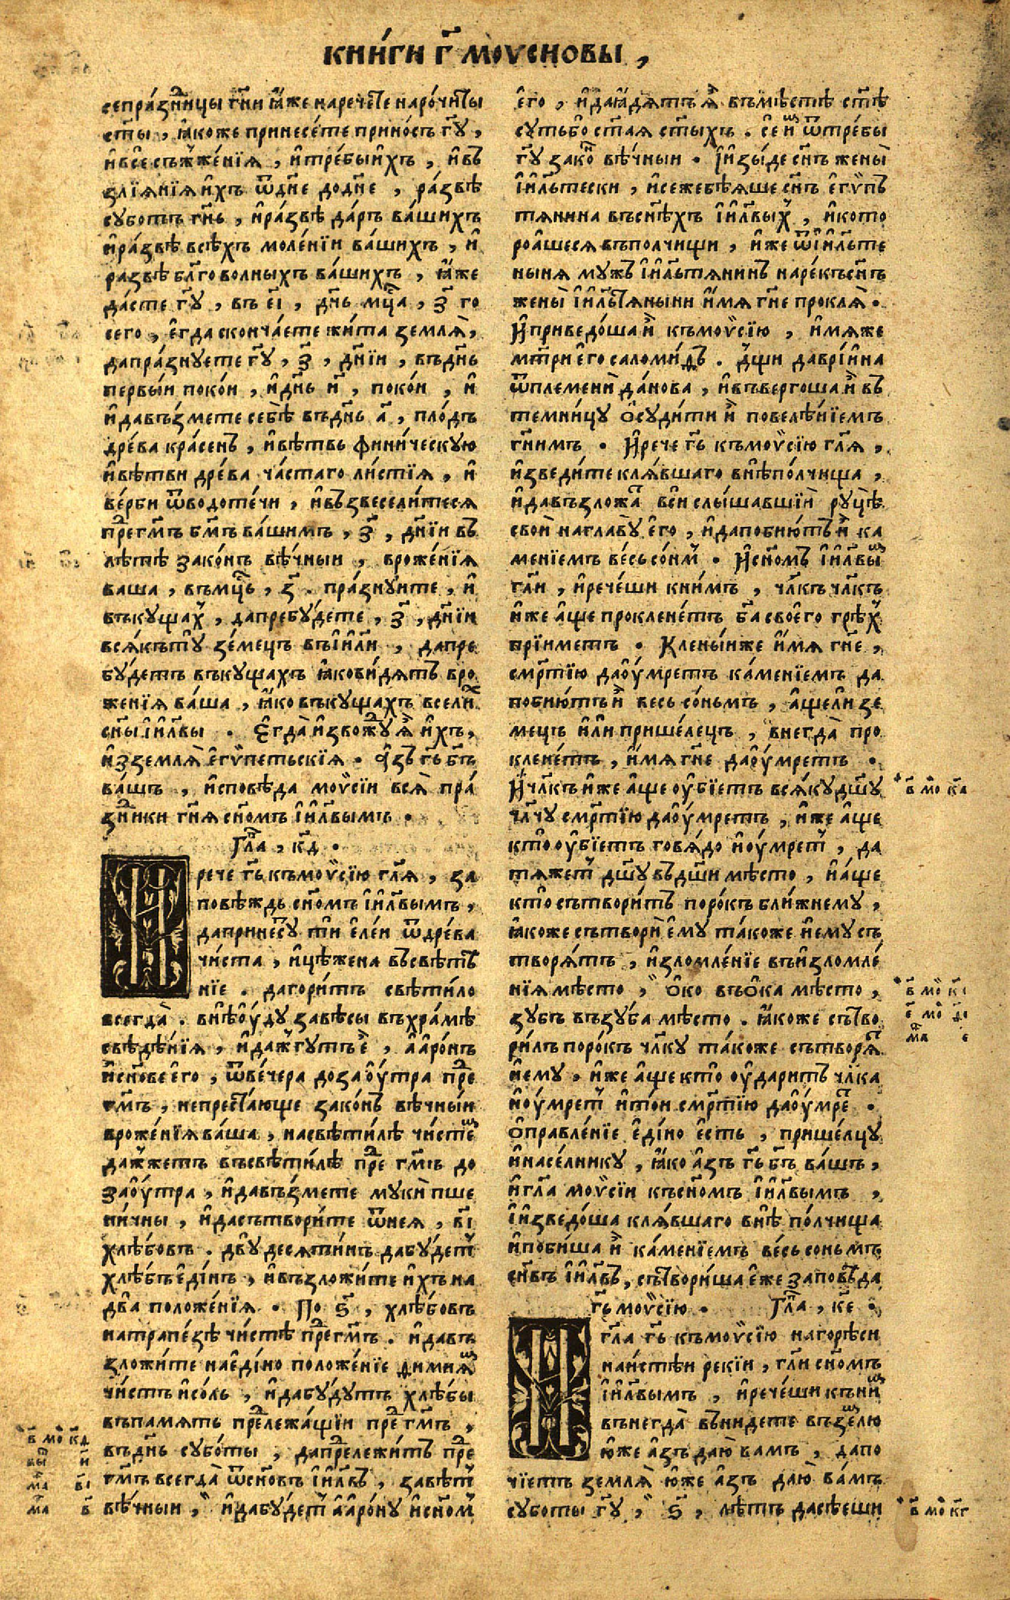 КНИ́ГИ Г҃ МОѴСИОВЫ ,
сепра́зⷣницы гⷭ҇ни ꙗ҆́же наречеⷮ҇е наро́читы
ст҃ы , ꙗ҆́коже принесе́те прино́съ гⷭ҇у ,
и҆всѐ съжже́нїѧ , и҆тре́бы и҆́хъ , и҆въ
злїѧ́нїѧ и҆́хъ ѿдн҃е додн҃е , ра́звѣ
субо́тъ гⷭ҇нь , и҆ра́звѣ да́ръ ва́шихъ
и҆ра́звѣ всѣ́хъ моле́нїи ва́шихъ , и҆
ра́звѣ бл҃говолныхъ ва́шихъ , ꙗ҆́же
да́сте гⷭ҇у , въ є҃і , дн҃ь мцⷭ҇а , з҃ го
сего̀ , є҆гда̀ сконча́ете жи́та землѧ̀ ,
дапра́знуете гⷭ҇у , з҃ , дн҃їи , въдн҃ь
первы́и поко́и , и҆дн҃ь и҃ , поко́и , и҆
и҆давъзмете себѣ̀ въдн҃ь а҃ , пло́дъ
дре́ва кра́сенъ , и҆вѣ́твь фини́ческую
и҆вѣ́тви дре́ва ча́стаго ли́стїѧ , и҆
ве́рби ѿводоте́чи , и҆възвесели́теся
преⷣгⷭ҇мъ бг҃мъ ва́шимъ , з҃ , дн҃їи въ
лѣ́тѣ зако́нъ вѣ́чныи , вроже́нїѧ
ваша , въмцⷭ҇ь , з҃ . пра́знуите , и҆
въкущаⷯ , дапребу́дете , з҃ , дн҃їи
всѧ́къту зе́мецъ въі҆и҃ли , дапре
бу́детъ въкущахъ ꙗ҆ковидѧ́тъ вро
же́нїѧ ва́ша , ꙗ҆́ко въкущахъ вселиⷯ
сн҃ы і҆и҃лвы . Є҆гда̀ и҆звожⷣу ѧ҆̀ и҆́хъ ,
и҆зземлѧ̀ є҆гѵ́петьскїѧ . А҆́зъ гⷭ҇ь бг҃ъ
ва́шъ , и҆сповѣ́да моѵсїи всѧ̀ пра́
зⷣники гⷭ҇нѧ сн҃омъ і҆и҃лвымъ .
Глⷡ҇а , к҃д .
И҆рече гⷭ҇ь къмоѵсїю гл҃ѧ , за
повѣ́ждь сн҃омъ і҆и҃лвымъ ,
дапринесу́ть ти є҆ле́и ѿдре́ва
чи́ста , и҆цѣ́жена въсвѣтъ
нїе . дагори́тъ свѣти́ло
всегда̀ . внѣ́ѹду завѣ́сы въхра́мѣ
свѣдѣ́нїѧ , и҆дажгу́тъ є҆̀ , а҆аро́нъ
и҆сн҃ове є҆го̀ , ѿве́чера доза́ѹтра преⷣ
гⷭ҇мъ , непрестⷭ҇ающе зако́нъ вѣ́чныи
вроже́нїѧ ва́ша , насвѣти́лѣ чи́стѣ
дажжетъ въсвѣти́лѣ преⷣ гⷭ҇мъ до
заѹ́тра , и҆давъзмете муки̑ пше
ни́чны , и҆дасътвори́те ѿнеѧ , в҃і
хлѣ́бовъ . двꙋдесѧти́нъ дабу́детъ
хлѣ́бъ є҆ди́нъ , и҆възложи́те и҆́хъ на
два положе́нїѧ . По ѕ҃ , хлѣ́бовъ
натрапе́зѣ чи́стѣ преⷣгⷭ҇мъ . и҆давъ
зложи́те наеди́но положе́нїе ѳимиѧⷨ
чи́стъ и҆со́ль , и҆дабу́дутъ хлѣ́бы
въпа́мять преⷣлежа́щїи преⷣ гⷭ҇мъ ,
въдн҃ь субо́ты , дапреⷣлежи́тъ преⷣ
гⷭ҇мъ всегда̀ ѿсн҃овъ і҆и҃лвъ , завѣ́тъ
вѣ́чныи , и҆дабу́детъ а҆аро́ну и҆сн҃омъ
є҆го̀ , и҆даꙗдѧ́тъ ѧ҆̀ въмѣ́стѣ ст҃ѣ
сутьбо ст҃аѧ ст҃ыхъ . се и҆ⷨ ѿтре́бы
гⷭ҇у зако́ⷩ вѣ́чныи . И҆изы́де сн҃ъ жены̀
і҆и҃льтески , и҆сежебѣ́ѧше сн҃ъ є҆гѵ́пъ
тянина въсн҃ѣхъ і҆и҃лвыⷯ , и҆кото
роа́шеся въполчищи , и҆́же ѿі҆и҃льте
ныня мужъ і҆и҃льтянинъ наре́късн҃ъ
жены̀ і҆и҃льтяныни и҆́мѧ гⷭ҇не проклѧ̀ .
И҆приведо́ша и҆̀ къмоѵсїю , и҆мѧже
мт҃ри є҆го саломи́дъ . дщ҃и даврі́ина
ѿплемени̑ да́нова , и҆въвергоша и҆̀ въ
темни́цу ѡ҆суди́ти и҆̀ повелѣ́нїемъ
гⷭ҇нимъ . И҆рече гⷭ҇ь къмоѵсїю гл҃ѧ ,
и҆зведи́те клѧ́вшаго внѣпо́лчища ,
и҆давъзложаⷮ всѝ слы́шавшїи ру́цѣ
свои̑ наглаву̀ є҆го , и҆дапобию́тъ и҆̀ ка
менїемъ ве́сь со́нмъ . И҆сн҃омъ і҆и҃лвыⷨ
гл҃и , и҆рече́ши кни́мъ , чл҃къ чл҃къ
и҆́же а҆́ще проклене́тъ бг҃а своего̀ грѣⷯ
прїиметъ . Клены́иже и҆́мѧ гⷭ҇не ,
смртїю даѹ́мретъ ка́менїемъ да
побию́тъ и҆̀ весь со́ньмъ , а҆́щели зе
мецъ и҆ли̑ прише́лецъ , внегда̀ про
клене́тъ , и҆́мѧ гⷭ҇не даѹ́мретъ .
И҆чл҃къ и҆́же а҆́ще ѹ҆бїе́тъ всѧ́ку дш҃у
чл҃чу смртїю даѹ́мретъ , и҆́же а҆́ще
кто̀ ѹ҆бїе́тъ говѧ́до и҆ѹ́мретъ , да
тѧ́жетъ дш҃у въдш҃и мѣ́сто , и҆а҆́ще
кто̀ сътвори́тъ поро́къ бли́жнему ,
ꙗ҆́коже сътвори̑ є҆му та́коже и҆ему съ
творѧ́тъ , и҆зломле́нїе въи҆зломле́
нїѧ мѣ́сто , ѻ҆́ко въѻ҆́ка мѣ́сто ,
зу́бъ въ зу́ба мѣ́сто . ꙗ҆́коже сътво
ри́лъ поро́къ чл҃ку та́коже сътворѧⷮ
и҆ему , и҆́же а҆́ще кто̀ ѹ҆да́ритъ чл҃ка
и҆ѹ́мретъ и҆то́и смртїю даѹ́мреⷮ .
Ѡ҆правле́нїе є҆ди́но є҆сть , прише́лцу
и҆насе́лнику , ꙗ҆́ко а҆́зъ гⷭ҇ь бг҃ъ ва́шъ ,
и҆гл҃а моѵсїи къ сн҃омъ і҆и҃лвымъ ,
І҆изведо́ша клѧ́вшаго внѣ по́лчища
и҆поби́ша и҆̀ ка́менїемъ ве́сь соньмъ
сн҃въ і҆и҃лвъ , сътвори́ша є҆́же заповѣ́да
гⷭ҇ь моѵсїю . Глⷡ҇а , к҃е .
И҆гл҃а гⷭ҇ь къмоѵсїю нагорѣси
наи́стѣи рекїи , гл҃и сн҃омъ
і҆и҃лвымъ , и҆рече́ши къниⷨ
вънегда̀ вънидете въземлю
ю҆́же а҆́зъ даю̀ вамъ , дапо
чїе́тъ землѧ̀ ю҆́же а҆́зъ даю̀ ва́мъ
субо́ты гⷭ҇у , ѕ҃ , лѣ́тъ дасѣ́еши
в҃ мо к҃а
в҃ мо
є҃ мо
в҃ мо к҃г
в҃ мо к҃д